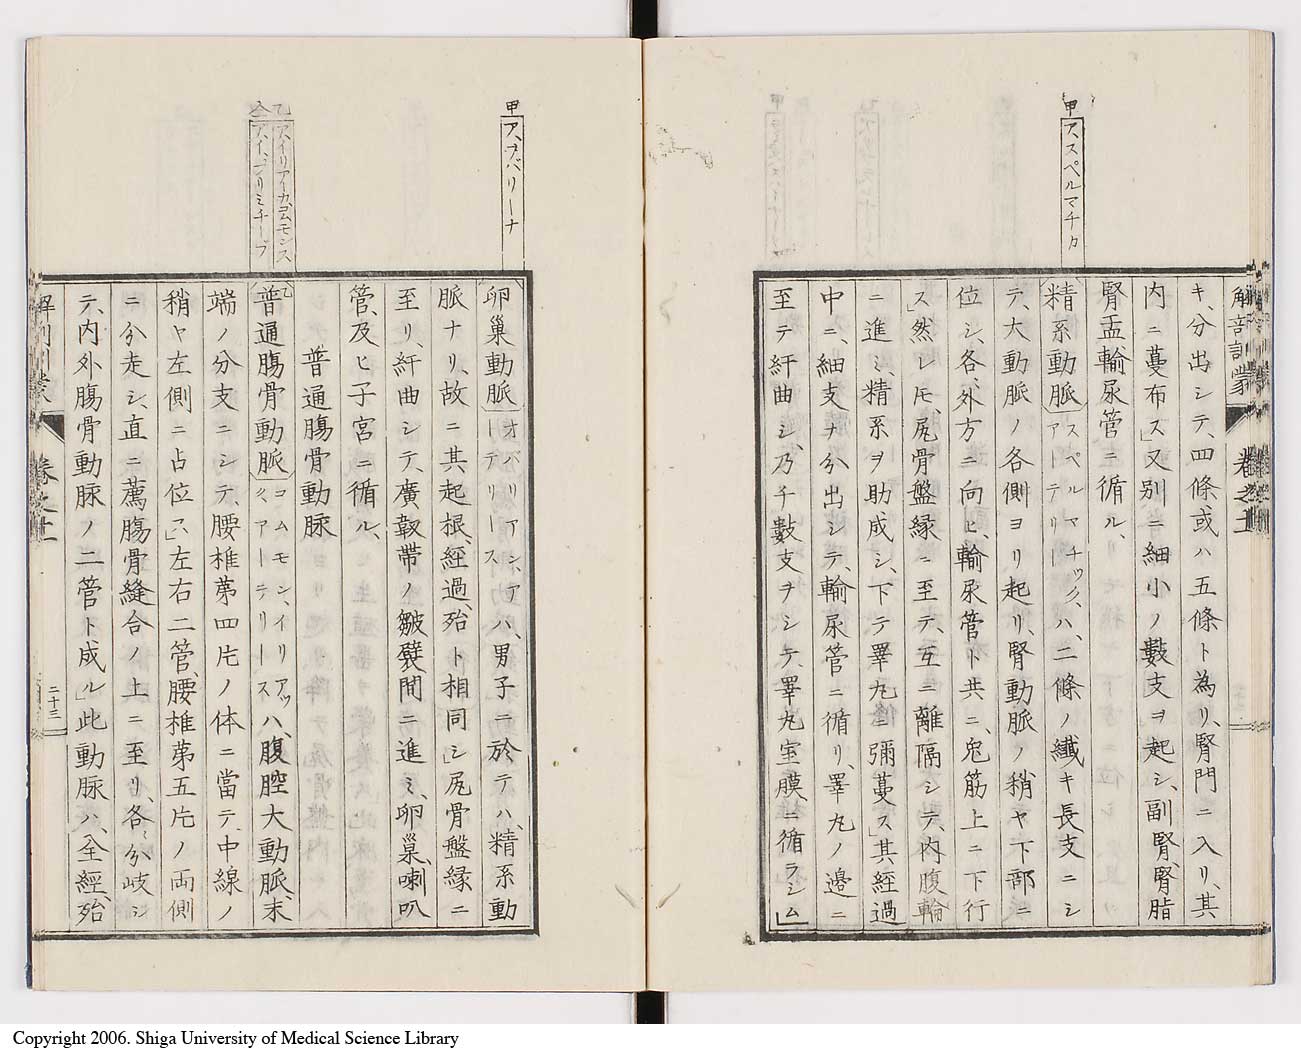 甲 アスペルマチカ
解剖訓蒙 卷之十
キ、分出シテ、四條或ハ五條ト為リ、腎門ニ入リ、其
内ニ蔓布ス」又別ニ細小ノ數支ヲ起シ、副腎、腎脂
腎盂輸尿管ニ循ル、
精系動脈 スペルマチック、アーテリー ハ、二條ノ纎キ長支ニシ
テ、大動脈ノ各側ヨリ起リ、腎動脈ノ稍ヤ下部ニ
位シ、各、外方ニ向ヒ、輸尿管ト共ニ、𠒎筋上ニ下行
ス」然レ𪜈、尻骨盤縁ニ至テ、互ニ離隔シテ、内腹輪
ニ進ミ、精系ヲ助成シ、下テ睪丸ニ彌蔓ス」其經過
中ニ、細支ヲ分出シテ、輸尿管ニ循リ、睪丸ノ邊ニ
至テ紆曲シ、乃チ數支ヲシテ、睪丸室膜ニ循ラシム」
甲 アヲバリーナ
乙 アイリアーカコムモンス
仝 アイ、プリミチーブ
卵巢動脈 オバリアン、アーテリース ハ、男子ニ於テハ、精系動
脈ナリ、故ニ其起根、經過、殆ト相同シ」尻骨盤縁ニ
至リ、紆曲シテ、廣靱帶ノ皺襞間ニ進ミ、卵巢、喇叭
管、及ヒ子宮ニ循ル、
普通腸骨動脈
普通腸骨動脈 コムモン、イリアック、アーテリース ハ、腹腔大動脈、末
端ノ分支ニシテ、腰椎苐四片ノ体ニ當テ、中線ノ
稍ヤ左側ニ占位ス」左右二管、腰椎苐五片ノ両側
ニ分走シ、直ニ薦腸骨縫合ノ上ニ至リ、各〻分岐シ
テ、内外腸骨動脈ノ二管ト成ル」此動脈ハ、全經、殆
卷之十
二十三